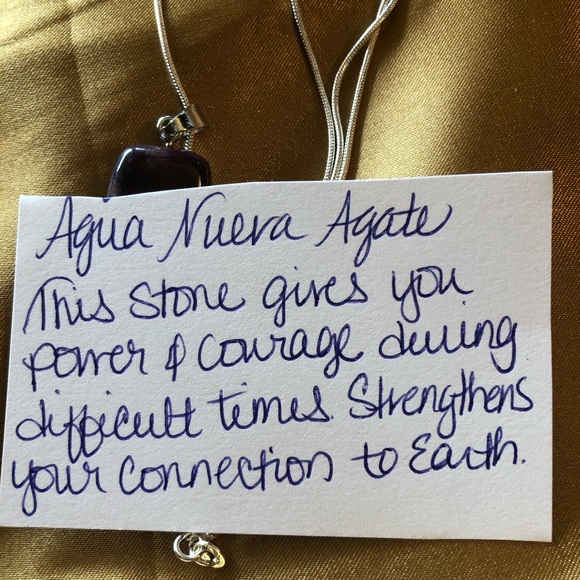 Agua Nueva Agate
This stone gives you
power & courage during
difficult times. Strengthens
your connection to Earth.